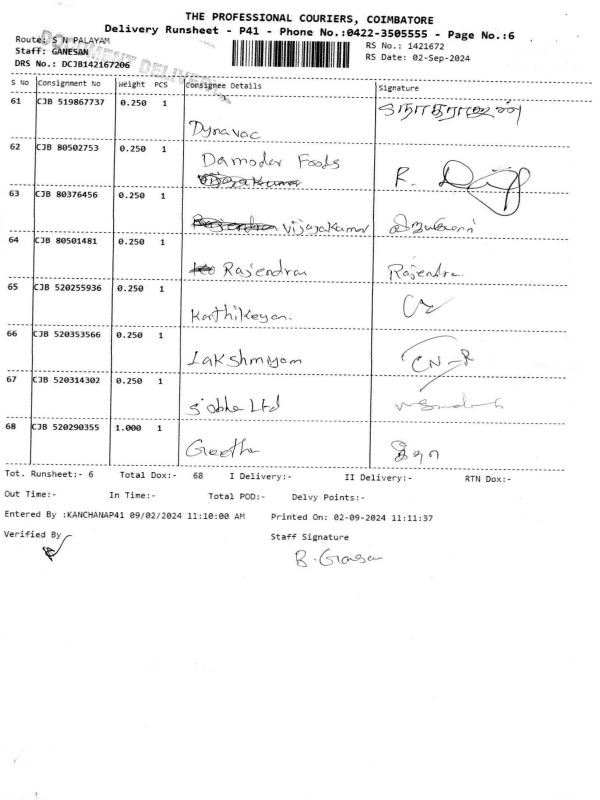 THE PROFESSIONAL COURIERS, COIMBATORE
Delivery Runsheet - P41 - Phone No.:0422-3505555 - Page No.:6
Route: S N PALAYAM
RS No.: 1421672
Staff: GANESAN
RS Date: 02-Sep-2024
DRS No.: DCJB142167206
DOCUMENT DELIVERY
S No Consignment No Weight PCS Consignee Details Signature
61 CJB 519867737 0.250 1 Dynavac
62 CJB 80502753 0.250 1 Damoder Foods R.
63 CJB 80376456 0.250 1 Vijayakumar
64 CJB 80501481 0.250 1 Rajendran Rajendra
65 CJB 520255936 0.250 1 Karthikeyan.
66 CJB 520353566 0.250 1 Lakshmiyam CN-R
67 CJB 520314302 0.250 1 Sobha Ltd
68 CJB 520290355 1.000 1 Geetha கீதா
Tot. Runsheet:- 6 Total Dox:- 68 I Delivery:- II Delivery:- RTN Dox:-
Out Time:- In Time:- Total POD:- Delvy Points:-
Entered By :KANCHANAP41 09/02/2024 11:10:00 AM Printed On: 02-09-2024 11:11:37
Verified By Staff Signature
B.